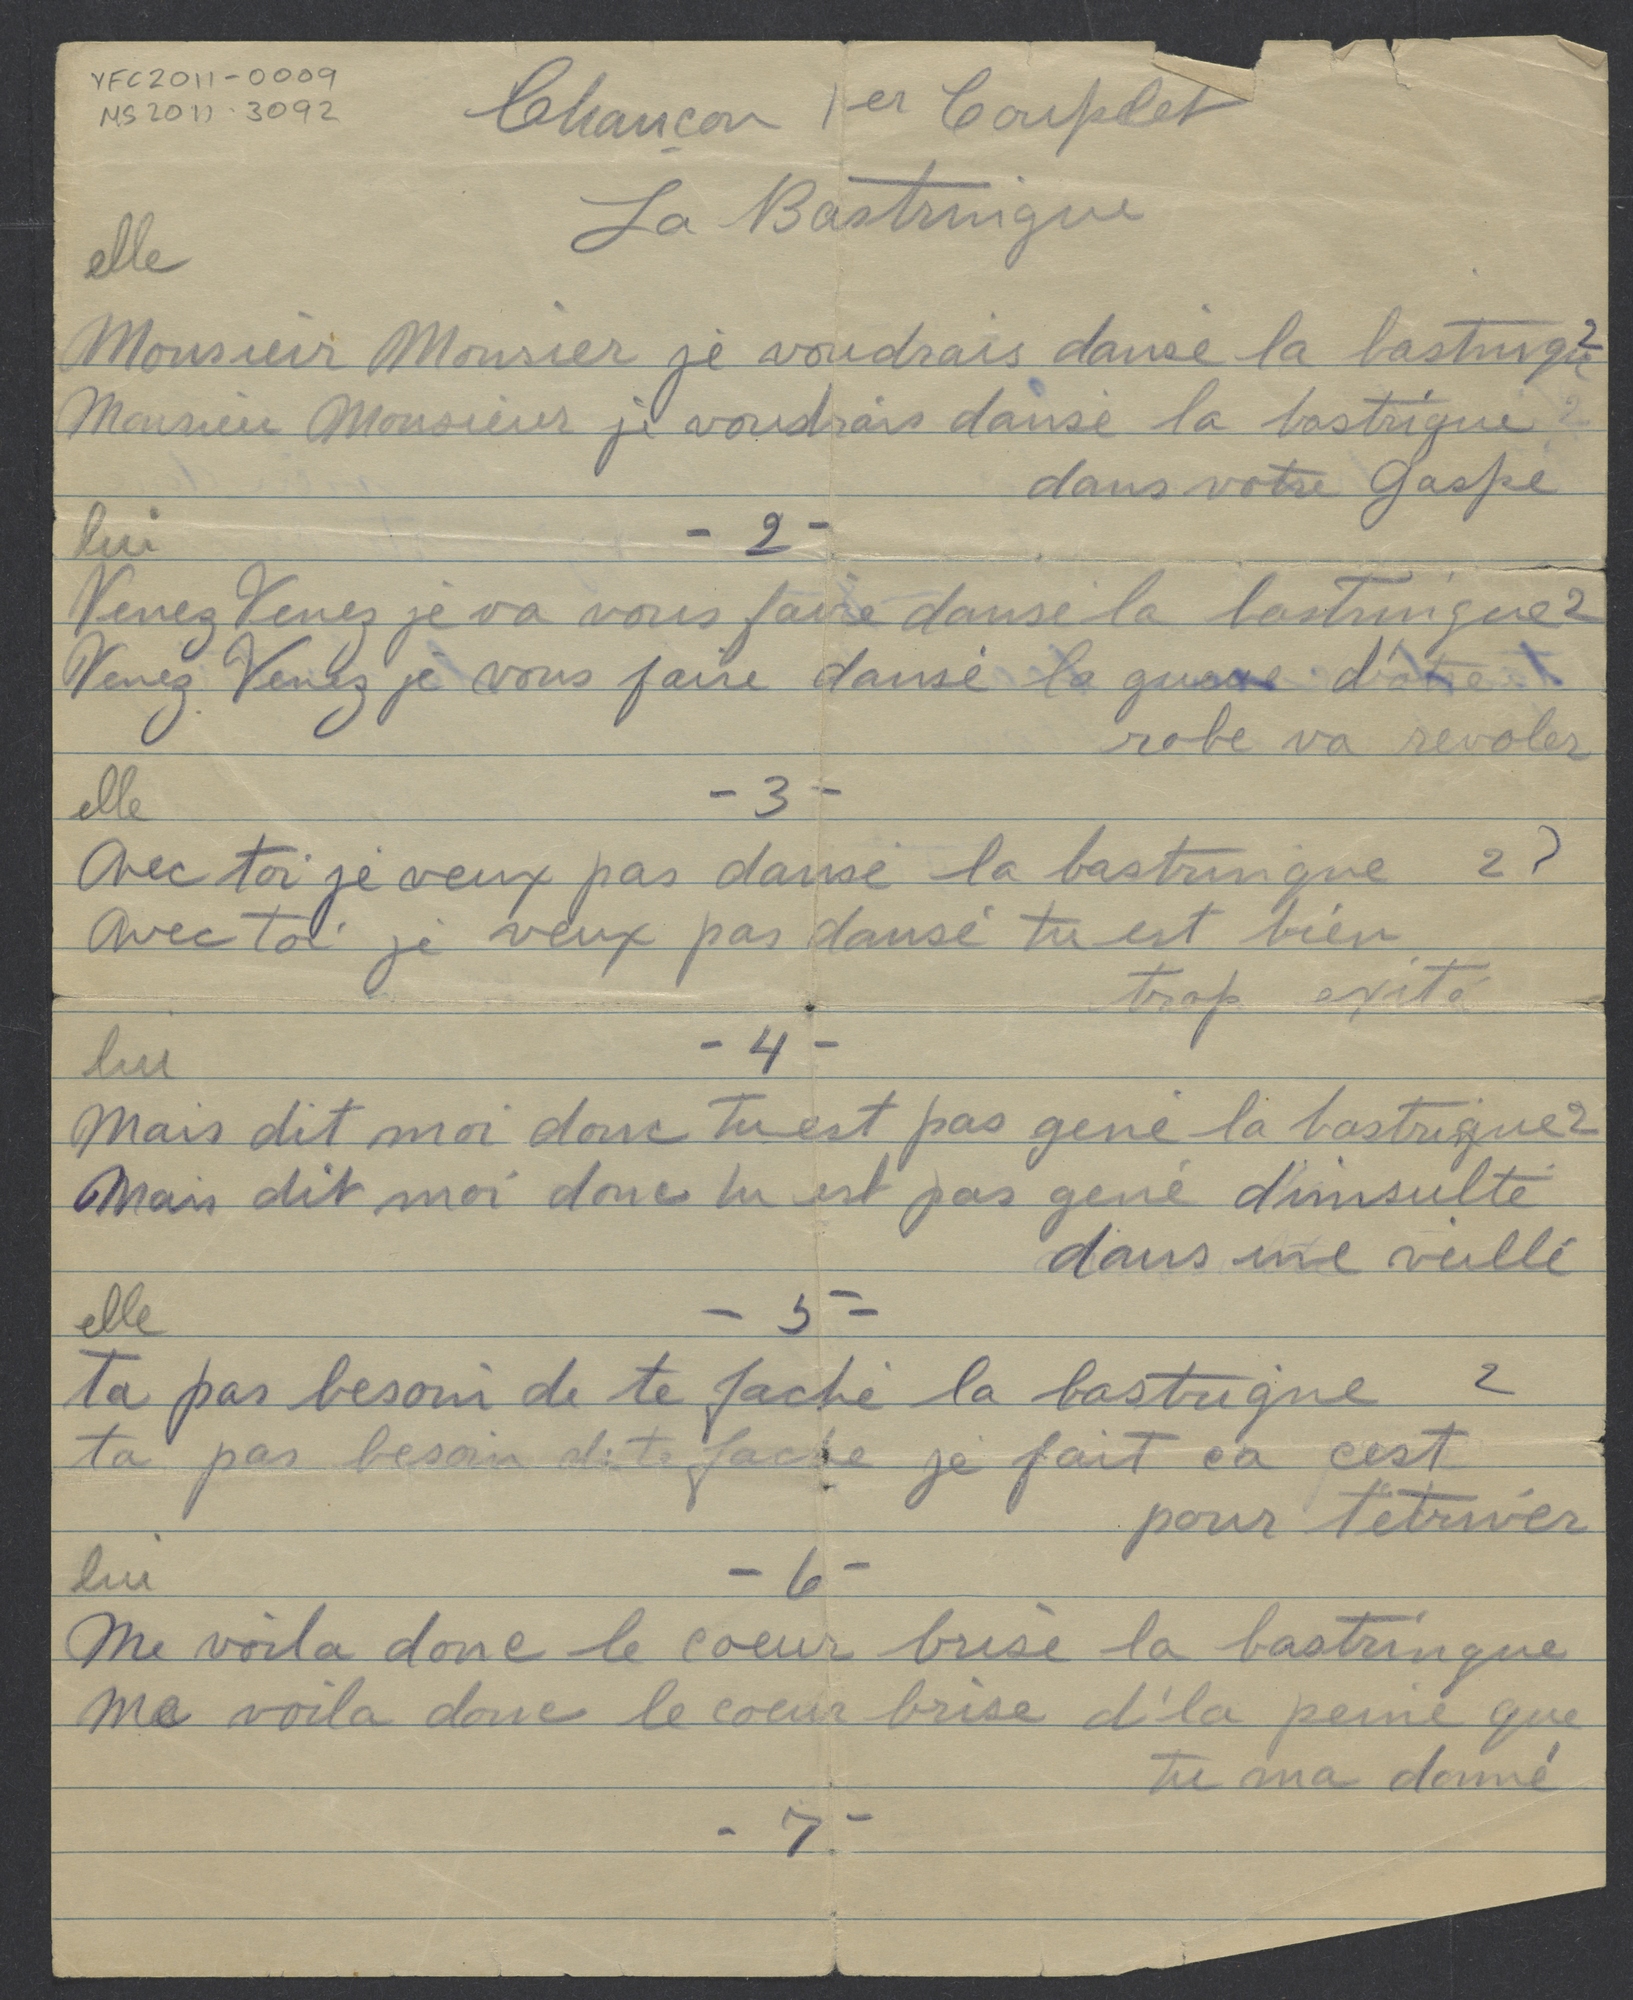 VFC2011-0009
MS2011.3092
Chançon 1er Couplet
La Bastringue
elle
Monsieur Monsier je voudrais dansé la bastringue 2
Monsieu Monsieur je voudrais dansé la bastrigue 2
dans votre Gaspé
lui - 2 -
Venez Venez je va vous faire dansé la bastringue 2
Venez Venez je vous faire dansé la d'otre
robe va revoler
elle - 3 -
Avec toi je veux pas dansé la bastringue 2
Avec toi je veux pas dansé tu est bien
trop exité
lui - 4 -
Mais dit moi donc tu est pas gené la bastrigue 2
Mais dit moi donc tu est pas gené d'insulté
dans une veillé
elle - 5 -
ta pas besoin de te faché la bastrigue 2
ta pas besoin de te faché je fait ca cest
pour t'étriver
lui - 6 -
Me voila donc le coeur brisé la bastringue
Me voila donc le coeur brise d'la peine que
tu ma donné
- 7 -